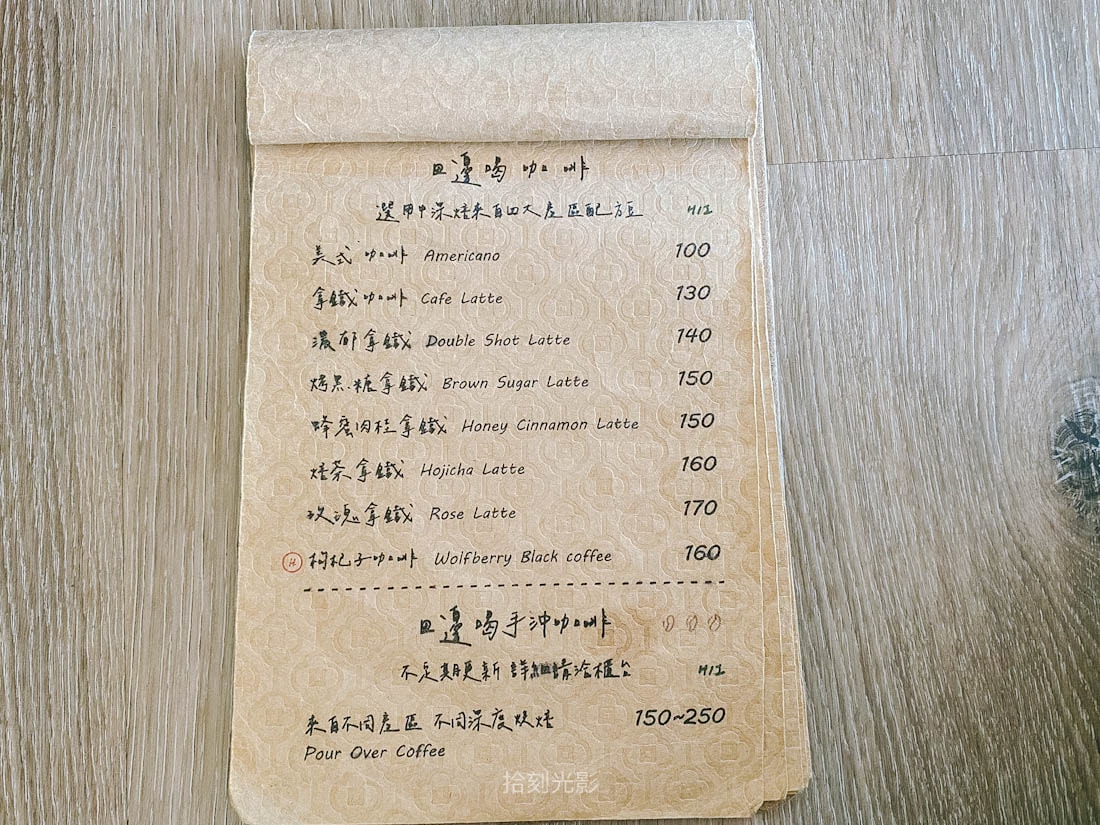 田邊喝咖啡
選用中深焙來自四大產區配方豆 H/I
美式咖啡 Americano 100
拿鐵咖啡 Cafe Latte 130
濃郁拿鐵 Double Shot Latte 140
烤黑糖拿鐵 Brown Sugar Latte 150
蜂蜜肉桂拿鐵 Honey Cinnamon Latte 150
焙茶拿鐵 Hojicha Latte 160
玫瑰拿鐵 Rose Latte 170
H 枸杞子咖啡 Wolfberry Black coffee 160
田邊喝手沖咖啡
不定期更新 詳細請洽櫃台 H/I
來自不同產區 不同深度烘焙 150~250
Pour Over Coffee
拾刻光影